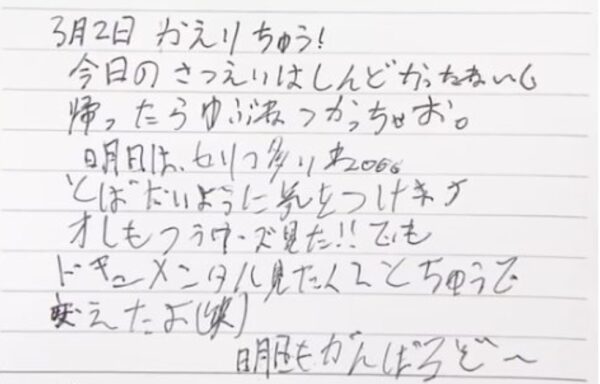 3月2日 かえりちゅう!
今日のさつえいはしんどかったない
帰ったらゆぶねつかっちゃお。
明日は、セリフ多いね
とばさないように気をつけます
オレもフラワーズ見た!!でも
ドキュメンタル見たくてとちゅうで
変えたよ(笑)
明日もがんばろぞ〜